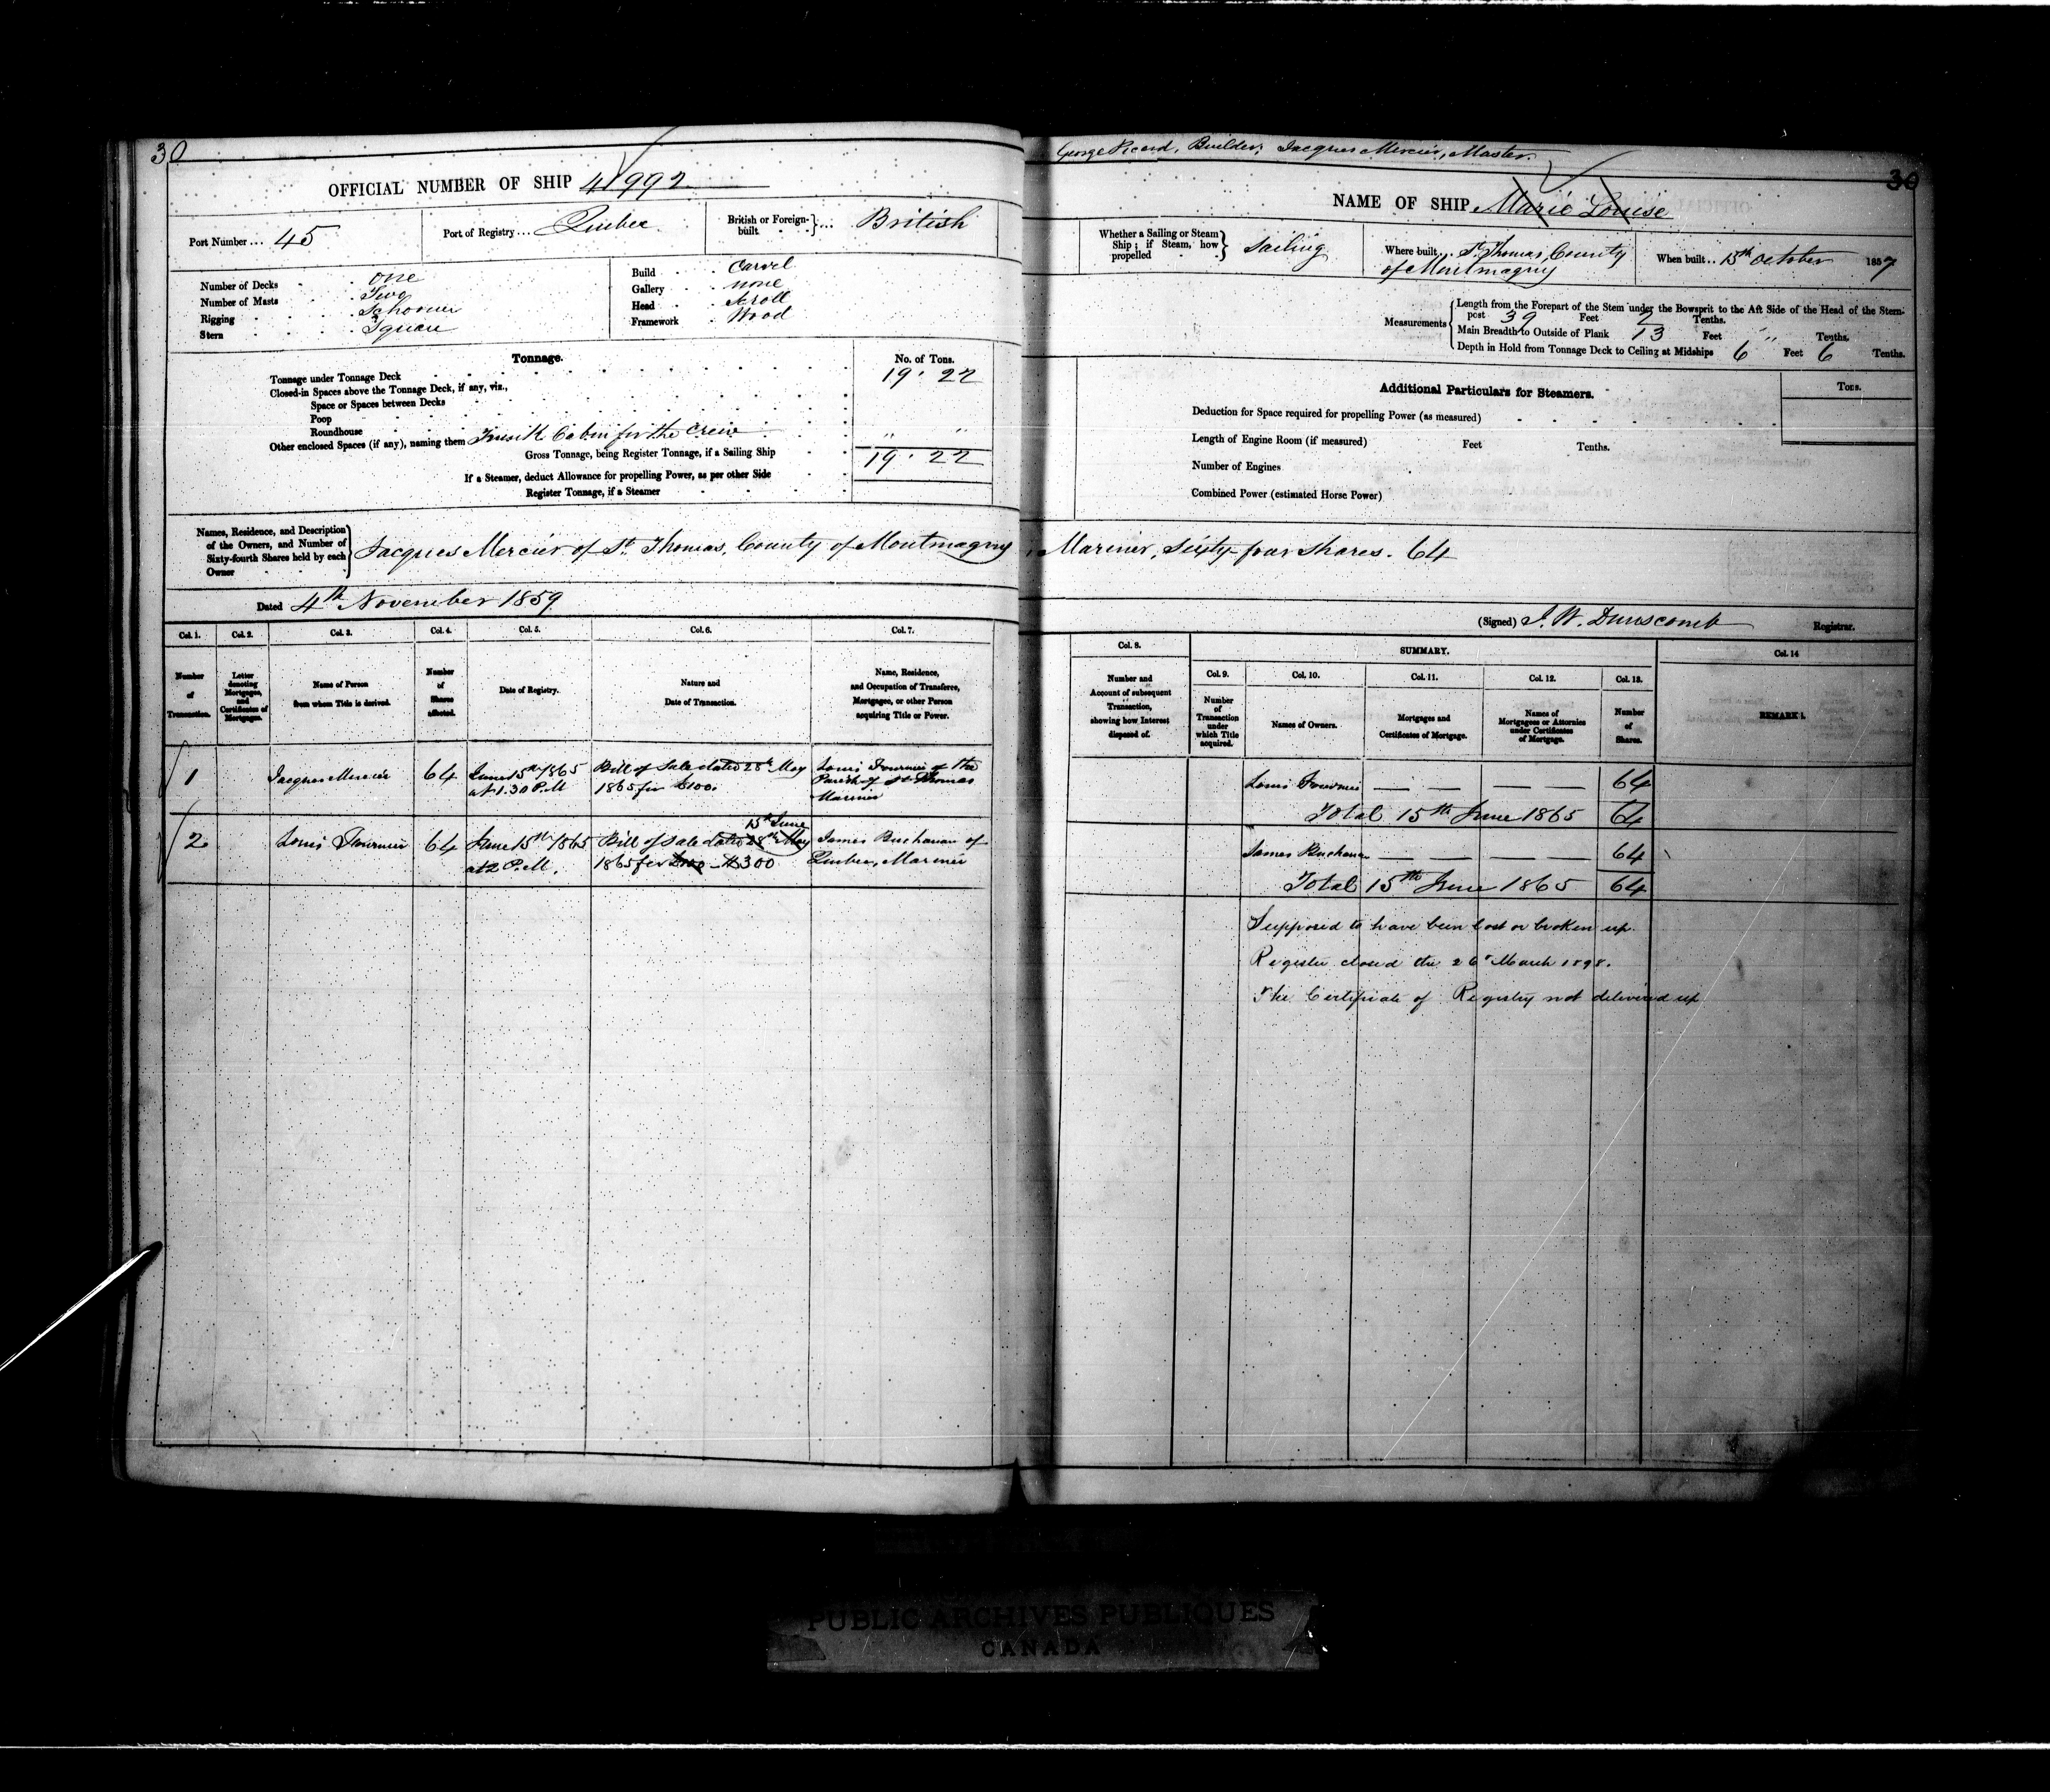 30
OFFICIAL NUMBER OF SHIP 41992
Port Number ... 45
Port of Registry ... Quebec
British or Foreign-built ... British
Number of Decks One
Number of Masts Two
Rigging Schooner
Stern Square
Build Carvel
Gallery none
Head Scroll
Framework Wood
Tonnage.
No. of Tons.
Tonnage under Tonnage Deck 19 . 22
Closed-in Spaces above the Tonnage Deck, if any, viz.,
Space or Spaces between Decks
Poop
Roundhouse
Other enclosed Spaces (if any), naming them Cabin for the Crew " "
Gross Tonnage, being Register Tonnage, if a Sailing Ship 19 . 22
If a Steamer, deduct Allowance for propelling Power, as per other Side
Register Tonnage, if a Steamer
Names, Residence, and Description
of the Owners, and Number of
Sixty-fourth Shares held by each
Owner
Jacques Mercier of St. Thomas, County of Montmagny
Dated 4th November 1859
Col. 1. Col. 2. Col. 3. Col. 4. Col. 5. Col. 6. Col. 7.
Number of Transaction.
Letter denoting Mortgages, and Certificates of Mortgages.
Name of Person from whom Title is derived.
Number of Shares affected.
Date of Registry.
Nature and Date of Transaction.
Name, Residence, and Occupation of Transferee, Mortgagee, or other Person acquiring Title or Power.
1 Jacques Mercier 64 June 15th 1865 at 1.30 P.M Bill of Sale dated 28th May 1865 for £100. Louis Fournier of the Parish of St Thomas Mariner
15th June
2 Louis Fournier 64 June 15th 1865 at 2 P.M. Bill of Sale dated 28th May 1865 for £100 $300 James Buchanan of Quebec, Mariner
George Picard, Builder; Jacques Mercier, Master.
30
NAME OF SHIP Marie Louise
Whether a Sailing or Steam Ship; if Steam, how propelled Sailing
Where built .. St. Thomas, County of Montmagny
When built .. 15th October 1857
Measurements
Length from the Forepart of the Stem under the Bowsprit to the Aft Side of the Head of the Stern-
post 39 Feet 2 Tenths.
Main Breadth to Outside of Plank 13 Feet " Tenths.
Depth in Hold from Tonnage Deck to Ceiling at Midships 6 Feet 6 Tenths.
Additional Particulars for Steamers.
Tons.
Deduction for Space required for propelling Power (as measured)
Length of Engine Room (if measured) Feet Tenths.
Number of Engines
Combined Power (estimated Horse Power)
, Mariner, Sixty four Shares. 64
(Signed) J. W. Dunscomb Registrar.
Col. 8. SUMMARY. Col. 14
Col. 9. Col. 10. Col. 11. Col. 12. Col. 13.
Number and Account of subsequent Transaction, showing how Interest disposed of.
Number of Transaction under which Title acquired.
Names of Owners.
Mortgages and Certificates of Mortgage.
Names of Mortgagees or Attornies under Certificates of Mortgage.
Number of Shares.
REMARKS.
Louis Fournier — — — — 64
Total 15th June 1865 64
James Buchanan — — — — 64
Total 15th June 1865 64
Supposed to have been lost or broken up.
Register closed the 26th March 1898.
The Certificate of Registry not delivered up
PUBLIC ARCHIVES PUBLIQUES
CANADA